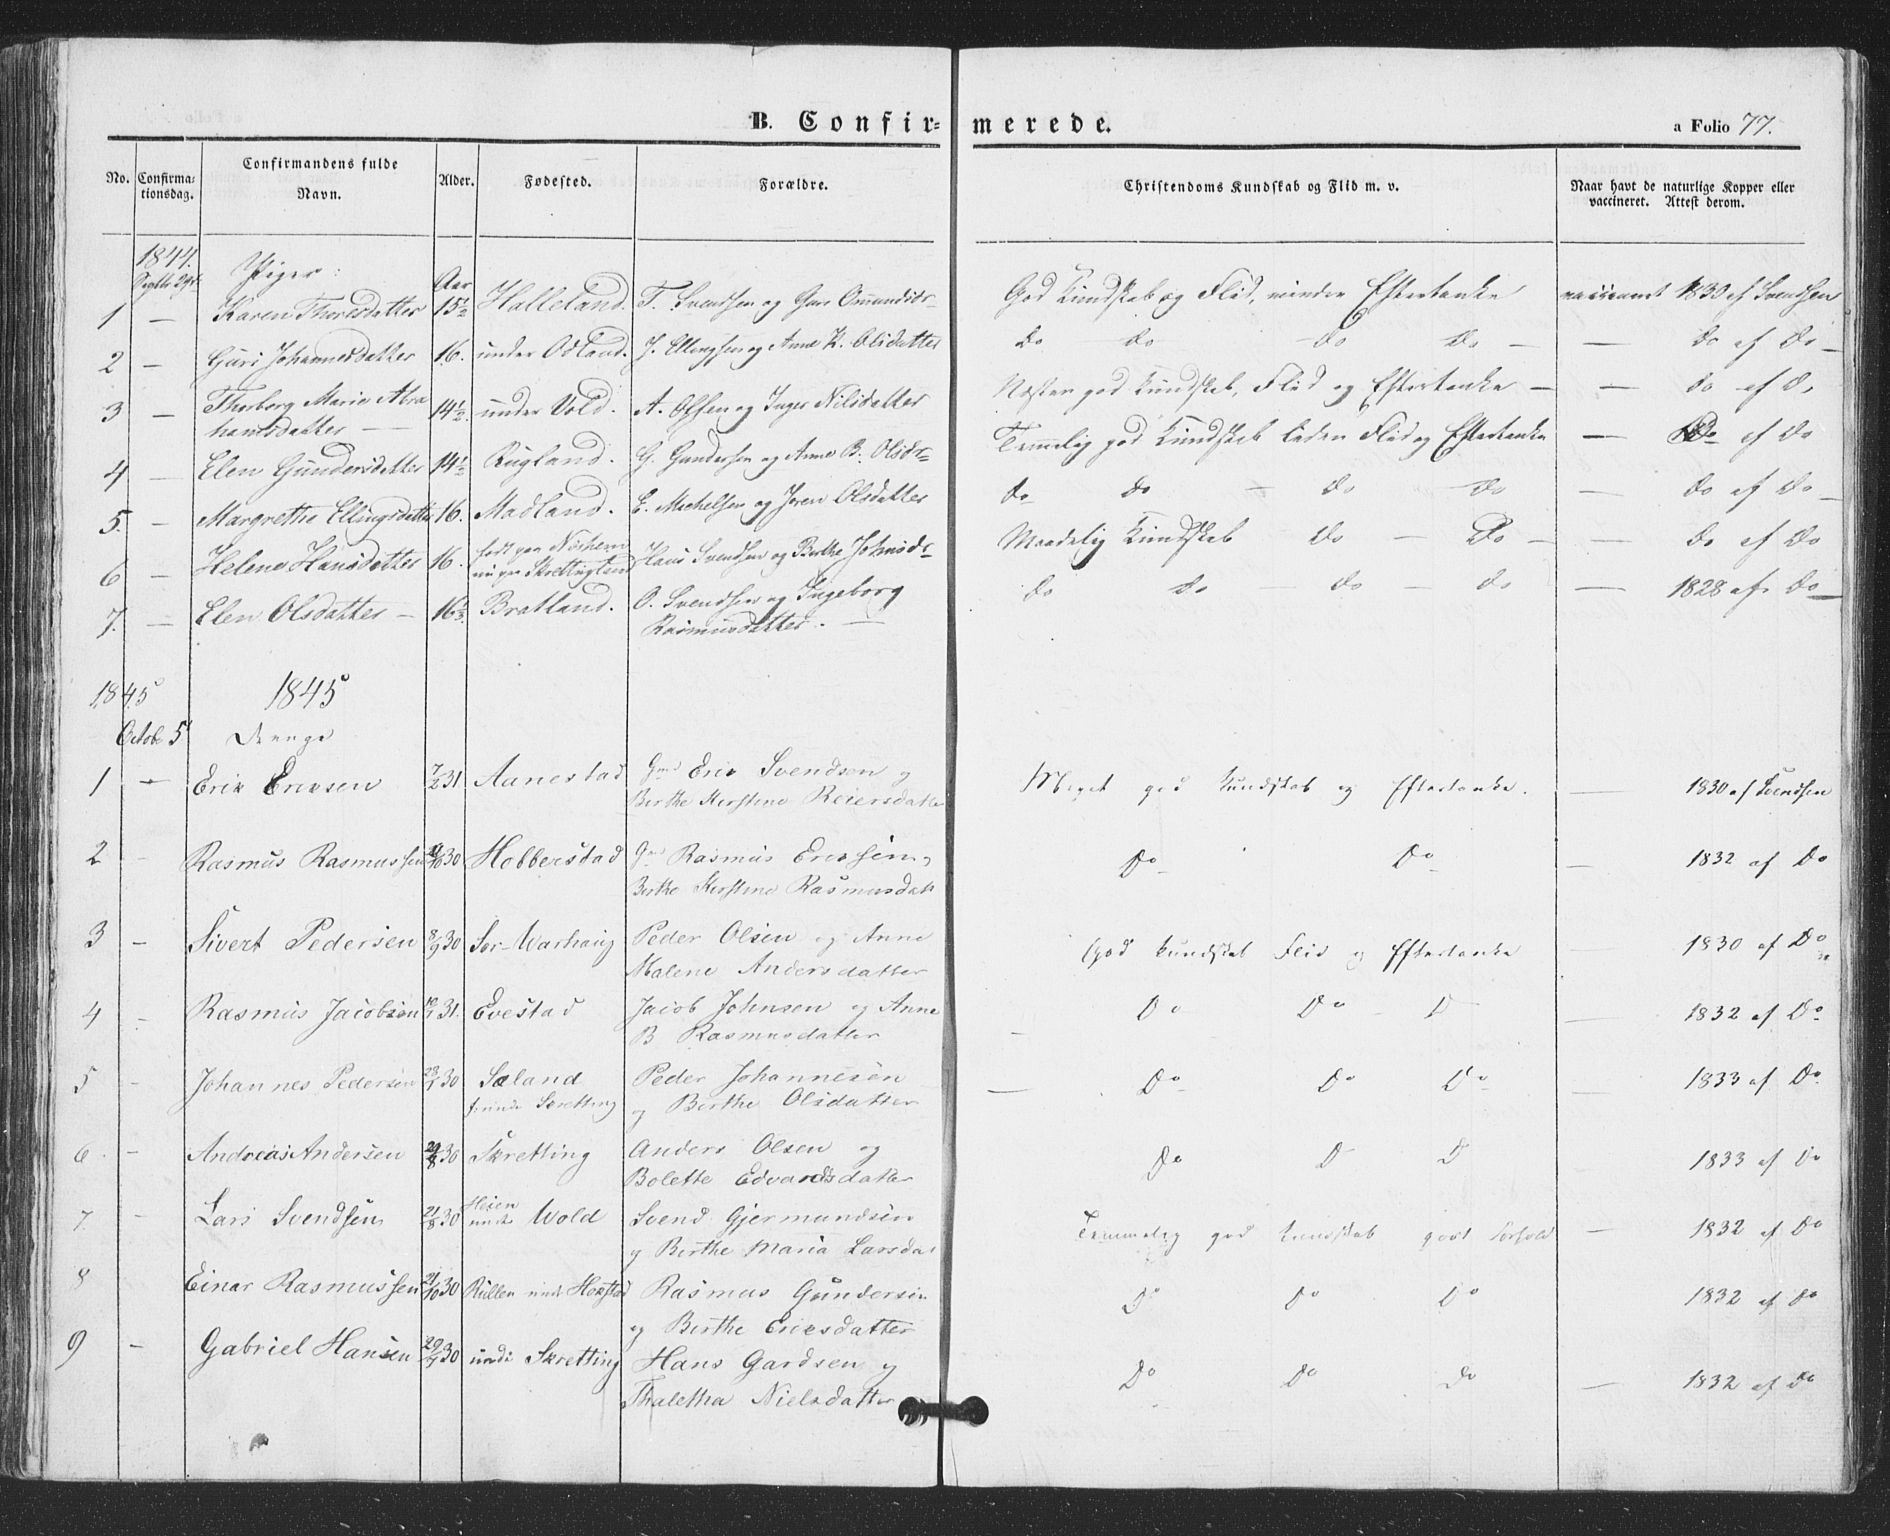 B. Confir- merede. a Folio 77.
No. Confirma-tionsdag. Confirmandens fulde Navn. Alder. Fødested. Forældre. Christendoms Kundskab og Flid m. v. Naar havt de naturlige Kopper eller vaccineret. Attest derom.
1844. Septbr 29de Piger: Aar
1 — Karen Thoresdatter 15½ Halleland. T. Svendsen og Guri Omundsdr God Kundskab og Flid, mindre Eftertanke vaccineret 1830 af Svendsen
2 — Guri Johannesdatter 16. under Odland. J. Ellingsen og Anne K. Olsdatter do do do do — — do af do —
3 — Thorborg Marie Abra 14½ under Vold. A. Olsen og Inger Nilsdatter Næsten god Kundskab, Flid og Eftertanke — — do af do
hamsdatter —
4 — Elen Gundersdatter 14½ Rugland. G. Gundersen og Anne B. Olsdr Temmelig god Kundskab liden Flid og Eftertanke — do af do
5. — Margrethe Ellingsdatter 16. Madland. E. Michelsen og Joren Olsdatter do do — do do — do af do —
6 — Helene Hansdatter 16. født paa Nærheim
nu paa Skrettingland Hans Svendsen og Berthe Johnsdr Maadelig Kundskab do — do — — do af do
7. — Elen Olsdatter — 16½ Bratland. O. Svendsen og Ingeborg do do — do — do — 1828 af do —
Rasmusdatter. —
1845 1845
Octob 5 Drenge
1 — Erik Ericsen 7/2 31 Aanestad Gmd Eric Svendsen og Meget god Kundskab og Eftertanke. — 1830 af Svendsen
Berthe Kirstine Reiersdatter
2 — Rasmus Rasmussen 30 Hobberstad Gmd Rasmus Ericsen og Do Do — 1832 af Do
Berthe Kirstine Rasmusdatt
3 — Sivert Pedersen 8/9 30 Sør-Warhaug Peder Olsen og Anne God Kundskab Flid og Eftertanke — 1830 af Do
Malene Andersdatter
4 — Rasmus Jacobsen 31. Evestad Jacob Johnsen og Anne Do Do D — 1832 af Do
B Rasmusdatter —
5 — Johannes Pedersen 30 Sæland Peder Johannesen — Do Do Do — 1833 af Do
Skretting og Berthe Olsdatter
6 — Andreas Andersen 29/8 30 Skretting Anders Olsen og Do D D 1833 af Do
Bolette Edvardsdatter
7 — Lars Svendsen 21/8 30 Heien
under Wold Svend Gjermundsen Temmelig god Kundskab godt Forhold — 1832 af Do
og Berthe Maria Larsdat
8 Einar Rasmussen 21/10 30 Rullen under Hogstad Rasmus Gundersen Do Do Do 1832 af Do
og Berthe Ericsdatter
9 — Gabriel Hansen 20/9 30 under Skretting Hans Gardsen og Do Do Do — 1832 af Do
Thaletha Nielsdatter